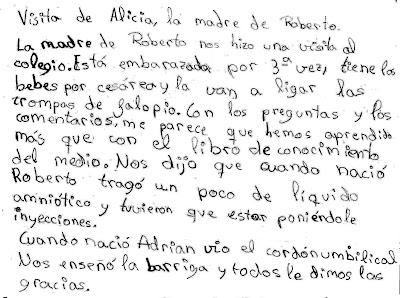 Visita de Alicia, la madre de Roberto.
La madre de Roberto nos hizo una visita al
colegio. Está embarazada por 3ª vez, tiene los
bebes por cesárea y la van a ligar las
trompas de falopio. Con los preguntas y los
comentarios, me parece que hemos aprendido
más que con el libro de conocimiento
del medio. Nos dijo que cuando nació
Roberto tragó un poco de líquido
amniótico y tuvieron que estar poniéndole
inyecciones.
Cuando nació Adrian vio el cordón umbilical
Nos enseñó la barriga y todos le dimos las
gracias.